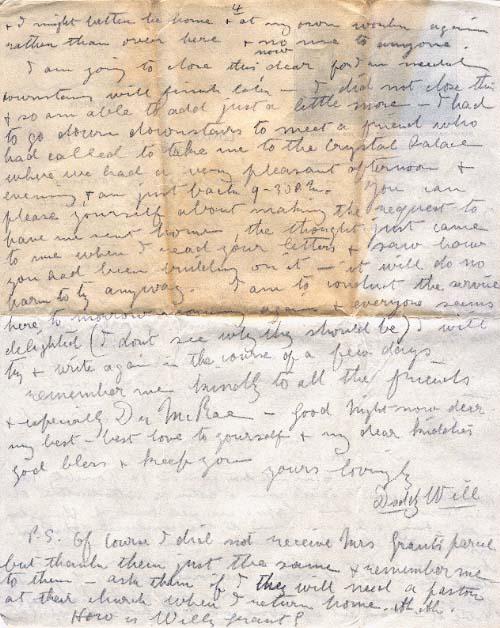 4
+ I might better be home + at my own work again
rather than over here + no use to anyone.
now
I am going to close this dear for I am needed
downstairs will finish later - I did not close this
+ so am able to add just a little more - I had
to go down downstairs to meet a friend who
had called to take me to the Crystal Palace
where we had a very pleasant afternoon +
evening + am just back 9-30 P.M. you can
please yourself about making the request to
have me sent home the thought just came
to me when I read your letters + saw how
you had been building on it - it will do no
harm to try anyway. I am to conduct the service
here to morrow again + everyone seems
delighted (I dont see why they should be) I will
try + write again in the course of a few days
remember me kindly to all the friends
+ especially Dr McRae - good night now dear
my best - best love to yourself + my dear kiddies
god bless + keep you
yours lovingly
Daddy Will
P.S. Of course I did not receive Mrs Grants parcel
but thank them just the same + remember me
to them - ask them if they will need a pastor
at their church when I return home.
How is Willy Grant?